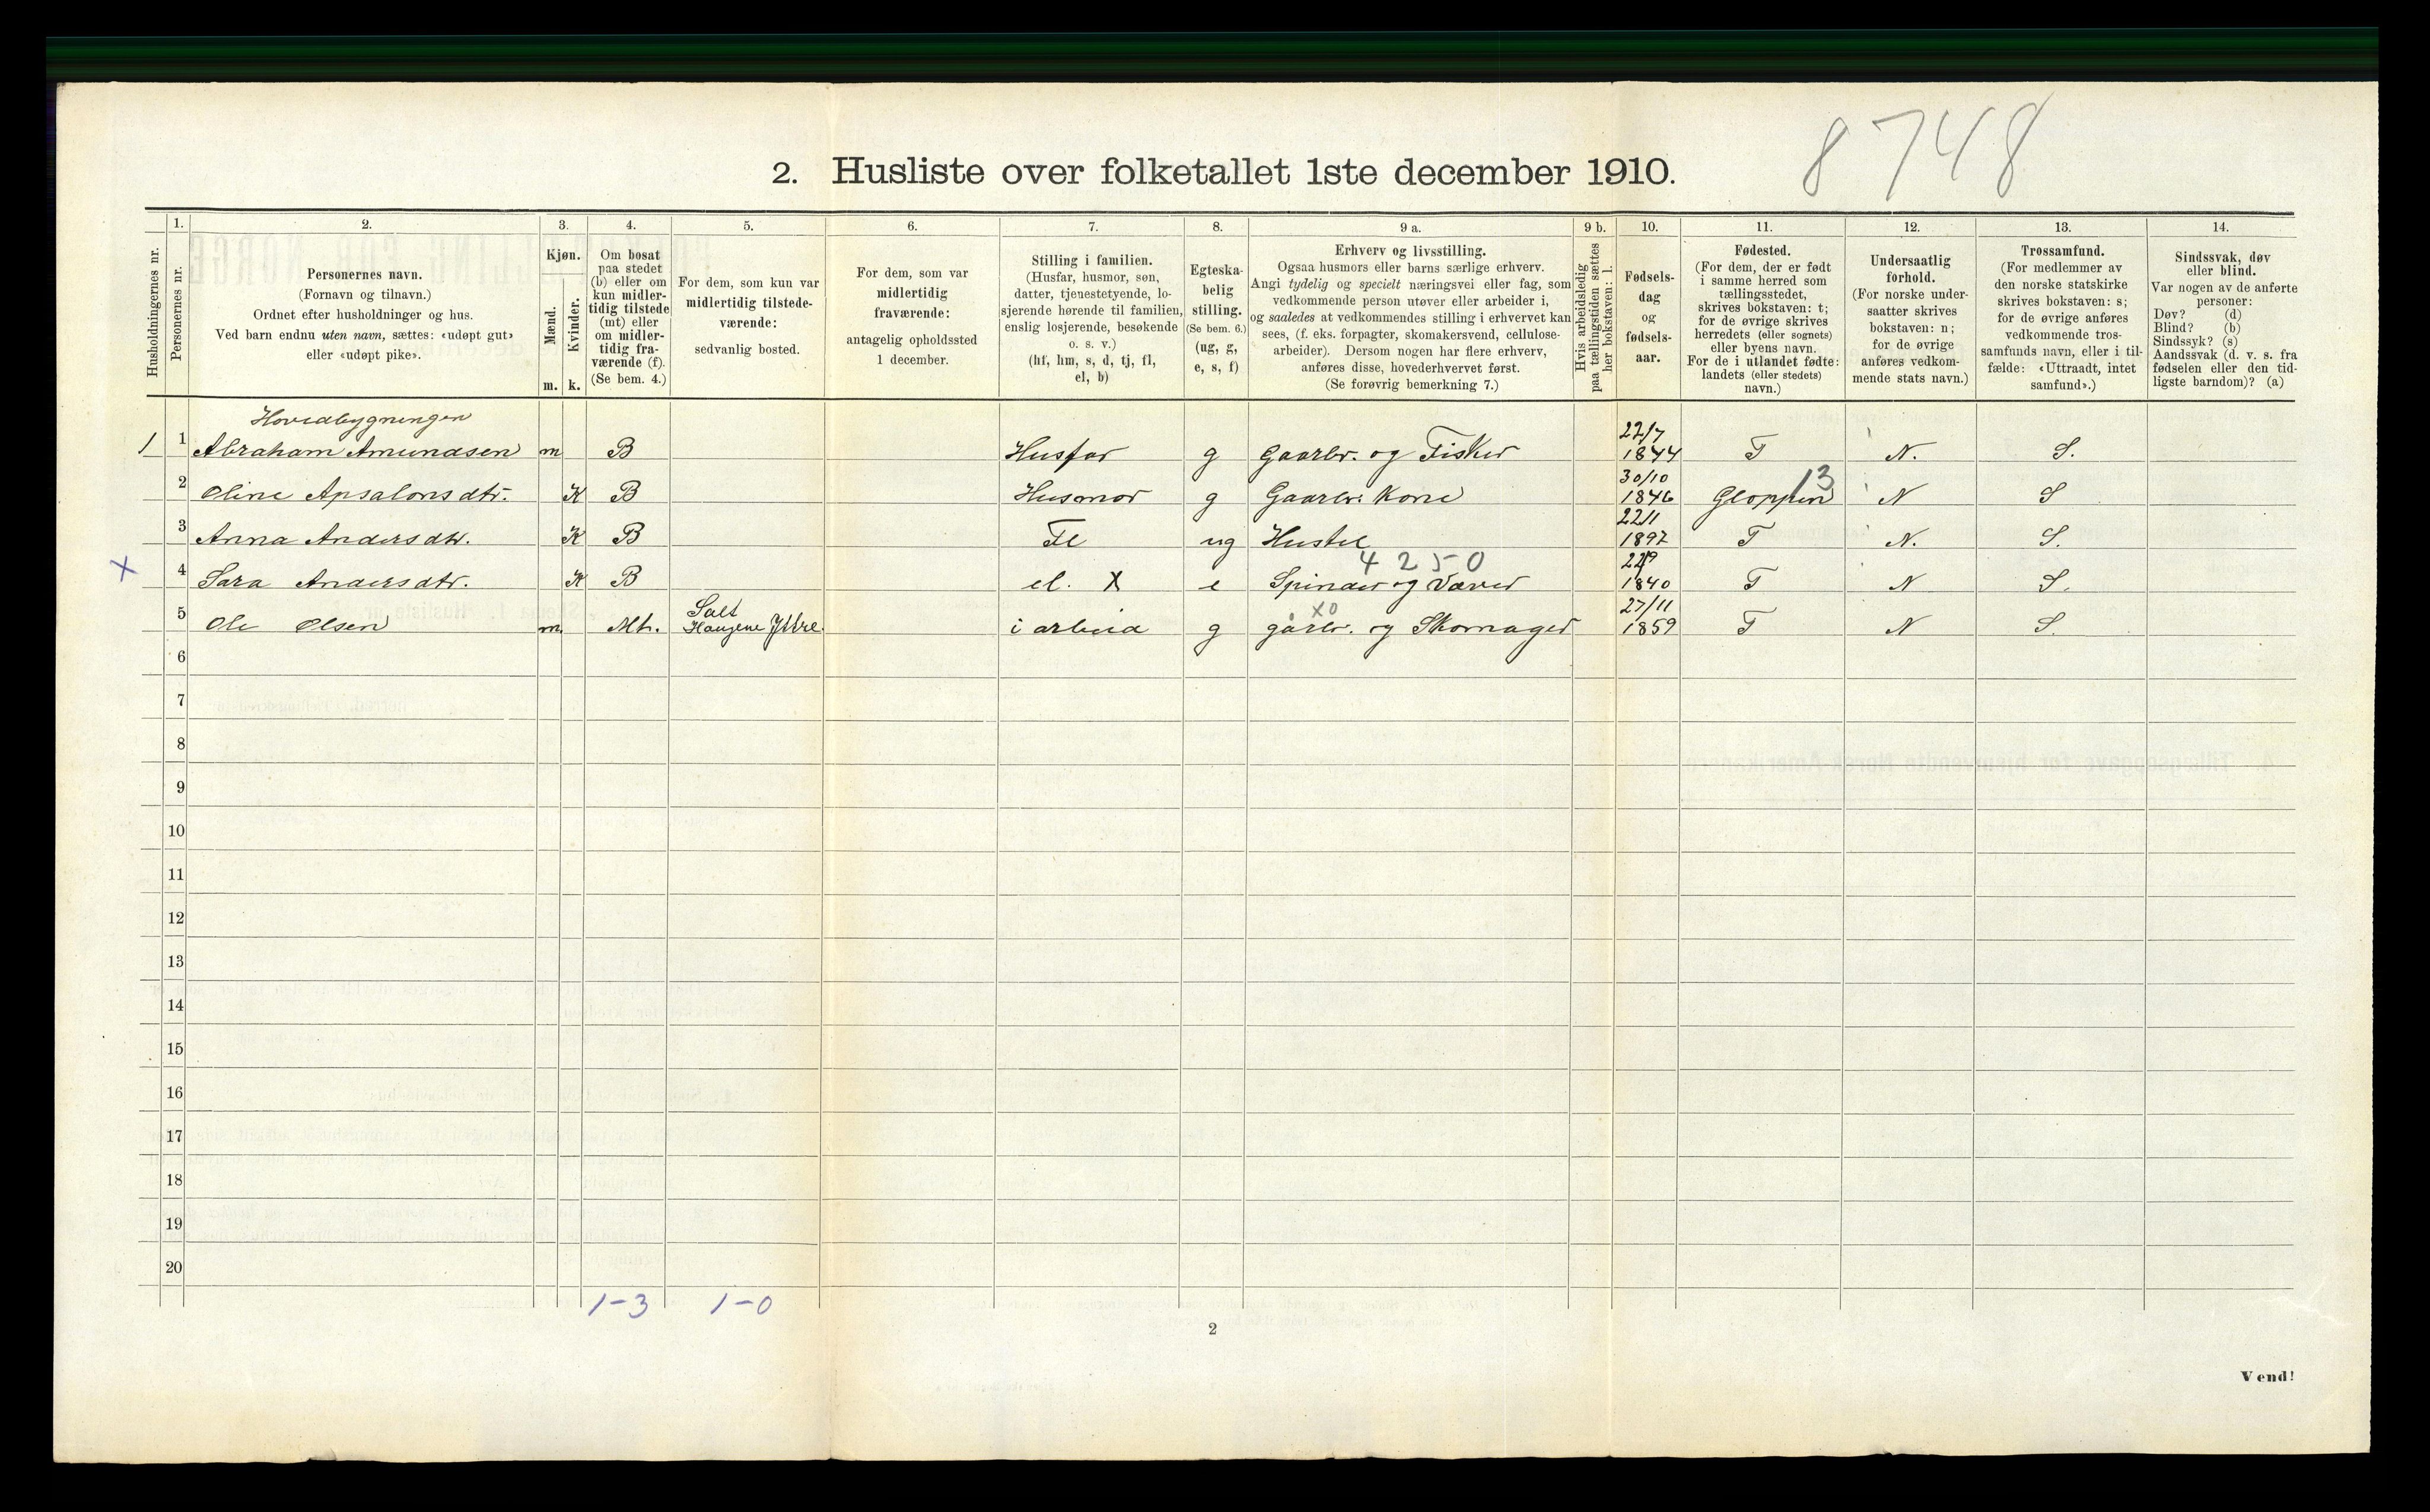 8748
2. Husliste over folketallet 1ste december 1910.
Husholdningernes nr.
1.
Personernes nr.
2.
Personernes navn.
(Fornavn og tilnavn.)
Ordnet efter husholdninger og hus.
Ved barn endnu uten navn, sættes: «udøpt gut»
eller «udøpt pike».
3.
Kjøn.
Mænd.
Kvinder.
m. k.
4.
Om bosat
paa stedet
(b) eller om
kun midler-
tidig tilstede
(mt) eller
om midler-
tidig fra-
værende (f).
(Se bem. 4.)
5.
For dem, som kun var
midlertidig tilstede-
værende:
sedvanlig bosted.
6.
For dem, som var
midlertidig
fraværende:
antagelig opholdssted
1 december.
7.
Stilling i familien.
(Husfar, husmor, søn,
datter, tjenestetyende, lo-
sjerende hørende til familien,
enslig losjerende, besøkende
o. s. v.)
(hf, hm, s, d, tj, fl,
el, b)
8.
Egteska-
belig
stilling.
(Se bem. 6.)
(ug, g,
e, s, f)
9 a.
Erhverv og livsstilling.
Ogsaa husmors eller barns særlige erhverv.
Angi tydelig og specielt næringsvei eller fag, som
vedkommende person utøver eller arbeider i,
og saaledes at vedkommendes stilling i erhvervet kan
sees, (f. eks. forpagter, skomakersvend, cellulose-
arbeider). Dersom nogen har flere erhverv,
anføres disse, hovederhvervet først.
(Se forøvrig bemerkning 7.)
9 b.
Hvis arbeidsledig
paa tællingstiden sættes
her bokstaven: l.
10.
Fødsels-
dag
og
fødsels-
aar.
11.
Fødested.
(For dem, der er født
i samme herred som
tællingsstedet,
skrives bokstaven: t;
for de øvrige skrives
herredets (eller sognets)
eller byens navn.
For de i utlandet fødte:
landets (eller stedets)
navn.)
12.
Undersaatlig
forhold.
(For norske under-
saatter skrives
bokstaven: n;
for de øvrige
anføres vedkom-
mende stats navn.)
13.
Trossamfund.
(For medlemmer av
den norske statskirke
skrives bokstaven: s;
for de øvrige anføres
vedkommende tros-
samfunds navn, eller i til-
fælde: «Uttraadt, intet
samfund».)
14.
Sindssvak, døv
eller blind.
Var nogen av de anførte
personer:
Døv? (d)
Blind? (b)
Sindssyk? (s)
Aandssvak (d. v. s. fra
fødselen eller den tid-
ligste barndom)? (a)
Hovedbygningen
1 1 Abraham Amundsen m B Husfar g Gaarbr. og Fisker 22/7 1844 T N. S.
2 Oline Apsalonsdtr. K B Husmor g Gaarbr. Kone 30/10 1846 Gloppen 13 N S
3 Anna Andersdtr. K B Fl ug Hustel 22/1 1897 T N. S.
4250
X 4 Sara Andersdtr. K B el. X e Spinder og Væver 1840 T N S.
5 Ole Olsen m. Mt. Salt Haugene Ittre. i arbeid g X0 gårbr. og Skomager 27/11 1859 T N S.
6
7
8
9
10
11
12
13
14
15
16
17
18
19
20
1-3 1-0
2
Vend!